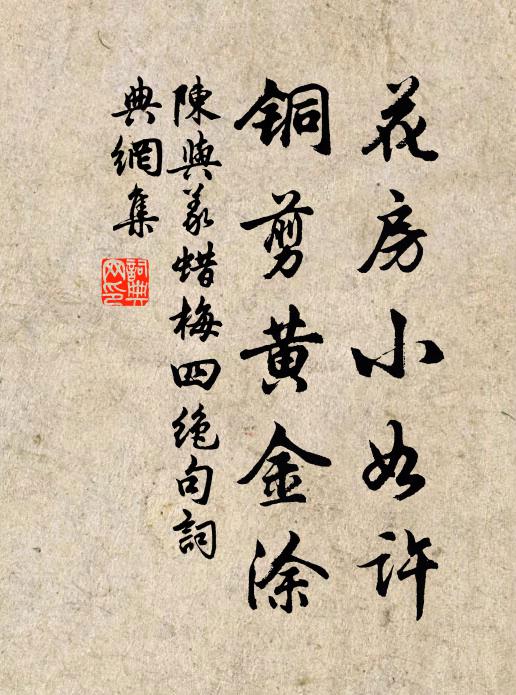 花房小如许
铜剪黄金涂
陳與義蜡梅四绝句詞
典網集
詞典
网印